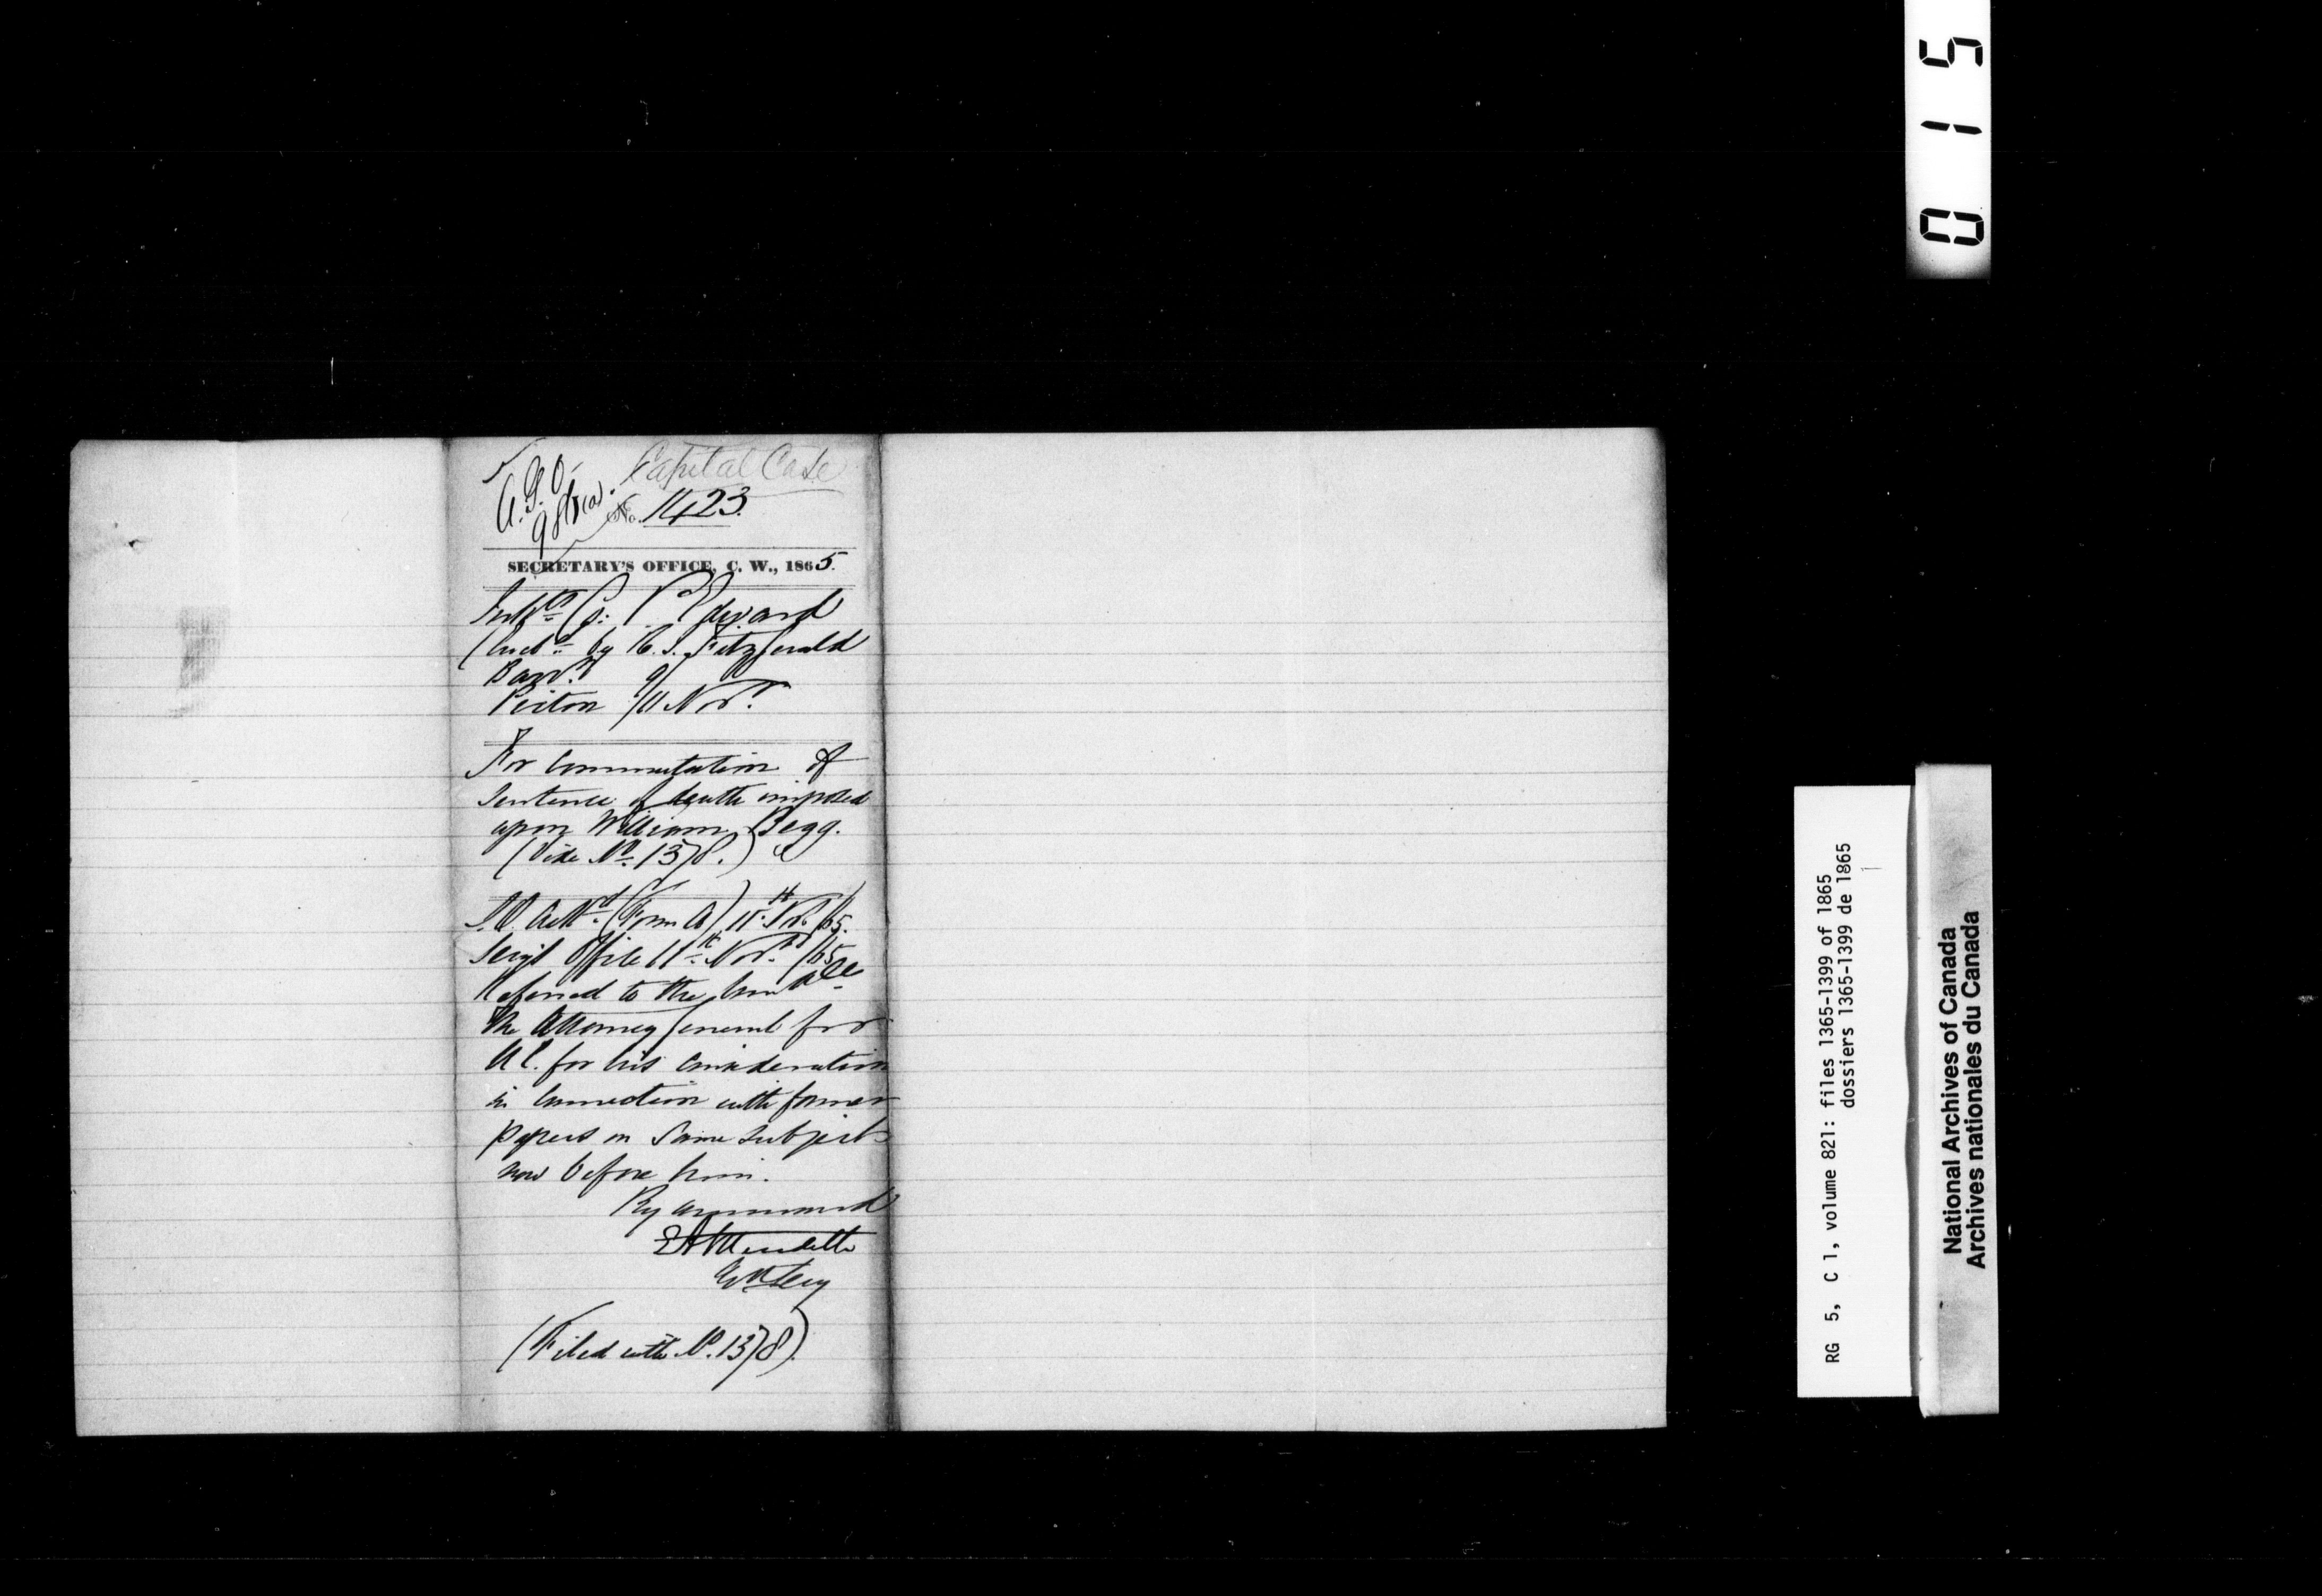 Capital Case
A.G.O.
No. 1423.
SECRETARY'S OFFICE, C. W., 1865.
Inhts Co: P. Edward
by R. S. Fitzgerald
Barr.
Picton Novr.
For Commutation of
Sentence of death imposed
upon William Begg.
(Vide No. 1378.)
(Form A) 11th Nov. /65.
Office 11th Novr. /65
Referred to the honble
the Attorney General for
U C. for his Consideration
in Connection with former
papers on Same Subject
now before him.
By command
E A Meredith
(Filed with No. 1378).
0 1 5
RG 5, C 1, volume 821: files 1365-1399 of 1865
dossiers 1365-1399 de 1865
National Archives of Canada
Archives nationales du Canada